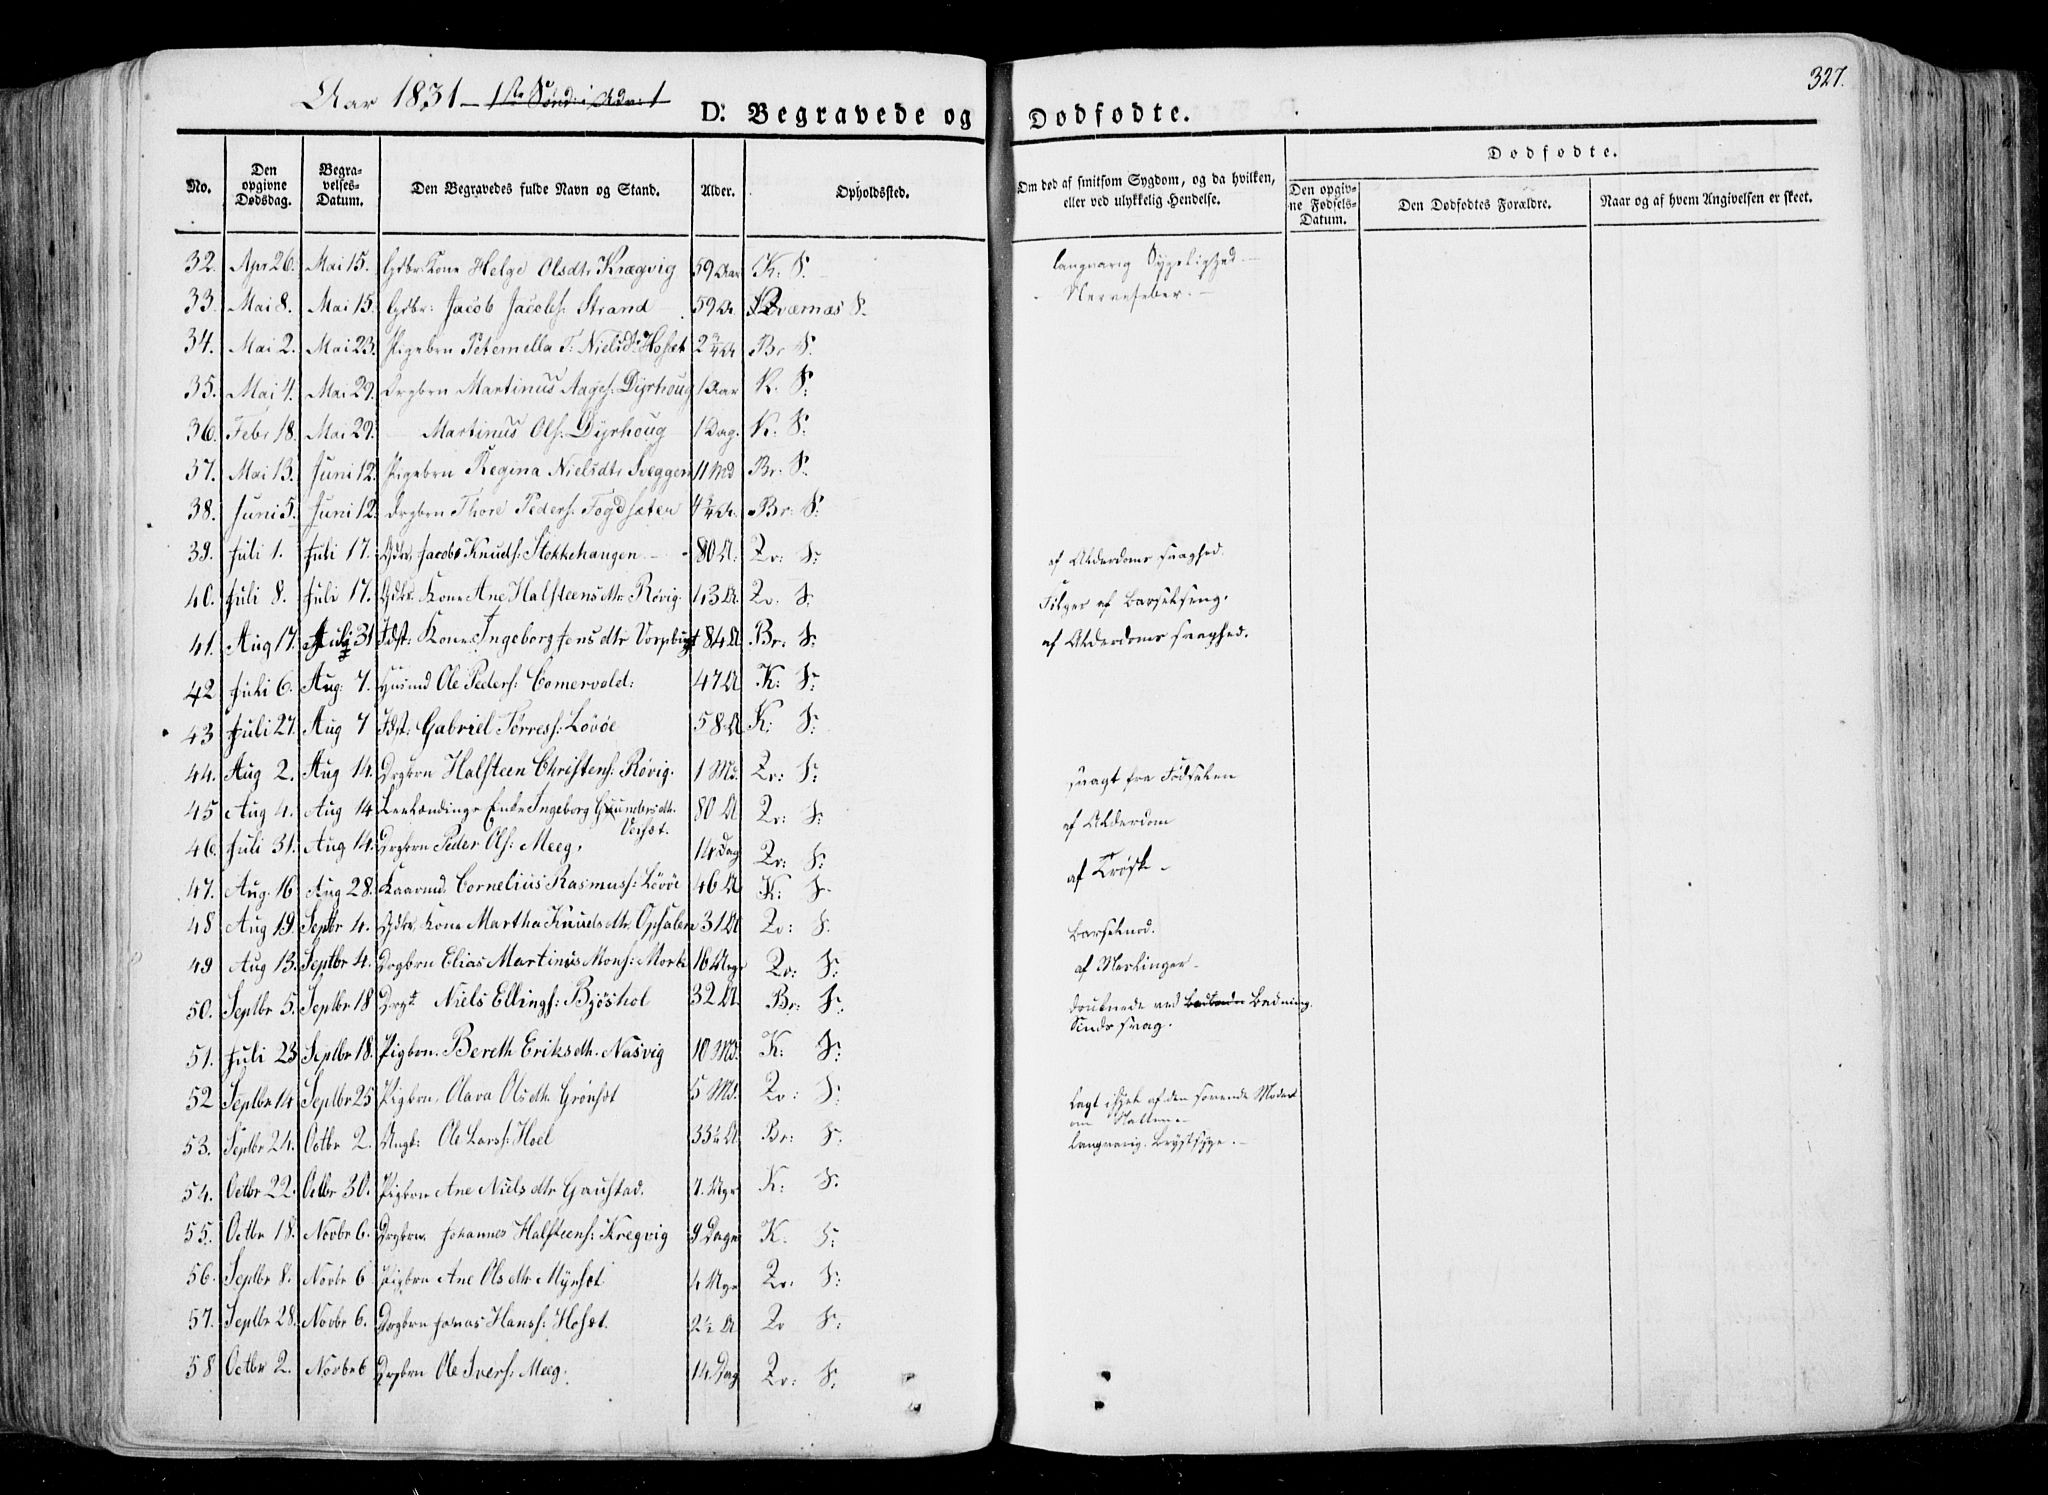 Aar 1831 - 1ste Sønd: i Adv: 1
327.
D: Begravede og Dødfødte.
No.
Den opgivne Dødsdag.
Begravelses-Datum.
Den Begravedes fulde Navn og Stand.
Alder.
Opholdssted.
Om død af smitsom Sygdom, og da hvilken, eller ved ulykkelig Hendelse.
Dødfødte.
Den opgivne Fødsels-Datum.
Den Dødfødtes Forældre.
Naar og af hvem Angivelsen er skeet.
32. Apr 26. Mai 15. Gdbr: Kone Helge Olsdtr Krægvig 59 Aar K: S. langvarig Sygelighed.
33. Mai 8. Mai 15 Gdbr: Jacob Jacobs: Strand 59 A. Qværnæs S. Nervefeber.
34. Mai 2. Mai 23. Pigebrn Peternella T: Nielsdt: Hoset 2 3/4 A Br S:
35. Mai 4. Mai 29. Drgbrn Martinus Aages: Dyrhoug 1 Aar K. S:
36. Febr 18. Mai 29. — Martinus Ols: Dyrhoug 1 Dag. K: S:
37. Mai 13. Juni 12. Pigebrn Regina Nielsdtr Sveggen 11 Md Br: S:
38. Juni 5. Juni 12. Drgbrn Thore Peders: Fogdsæter 4 3/4 A. Br: S:
39. Juli 1. Juli 17. Gdbr. Jacob Knuds: Stokkehaugen 80 A. Qv: S: af Alderdoms svaghed.
40. Juli 8. Juli 17. Gdbr. Kone Ane Halsteensdtr. Røvig. 43 A. Qv. S: Følger af Barselseng.
41. Aug 17. Juli 31 Fdst: Kone Ingeborg Jensdtr 84 A Br: S: af Alderdoms svaghed.
42. Juli 6. Aug: 7. Husmd Ole Peders: Comervold: 47 A K: S:
43 Juli 27. Aug 7 Fdst: Gabriel Torress: Løvøe 58 A K: S:
44. Aug 2. Aug 14. Drgbrn Halsteen Christens: Røvig. 1 Md. Qv: S: svagt fra Fødselen
45 Aug 4. Aug 14 Enke Ingeborg Gundersdtr. 80 A Qv: S: af Alderdom
46. Juli 31. Aug 14. Drgbrn Peder Ols: Meeg. 14 Dag Qv: S: af Trøsk
47. Aug. 16 Aug 28. Kaarmd. Cornelius Rasmuss: Løvøe 46 A K: S.
48 Aug 19. Septbr 4. Gdbr. Kone Martha Knudsdtr. Ophalen 31 A Qv: S. Barselnød.
49 Aug 13. Septbr 4. Drgbrn Elias Martinus Mons: Mork 16 Uger Qv: S: af Meslinger
50. Septbr 5. Septbr 18 Drgt. Niels Ellings: Bjøshol 32 A. Br: S: druknede ved Badning. Sindssvag.
51. Juli 23 Septbr 18. Pigbrn. Bereth Eriksdtr. Nasvig 10 Md. K: S:
52 Septbr 14 Septbr 25 Pigbrn. Olava Olsdtr. Grønset 5 Md. Qv: S: lagt ihjel af den sovende Moder om Natten
53. Septbr 24. Octbr 2. Ungk: Ole Lars: Hoel 33 1/2 A. Br: S. langvarig Brystsyge.
54. Octbr 22. Octbr 30. Pigbrn Ane Nielsdtr Gaustad. 7. Ugr K: S.
55. Octbr 18. Novbr 6. Drgbrn. Johannes Halsteens: Kregvig 9 Dage K. S:
56. Septbr 8. Novbr 6 Pigbrn Ane Olsdtr Mynset 4 Ugr Qv: S:
57. Septbr 28. Novbr 6. Drgbrn Jonas Hans: Hoset. 2 1/2 A Qv S:
58 Octbr 2. Novbr 6 Drgbrn Ole Ivers: Meeg. 14 Dag Qv: S: